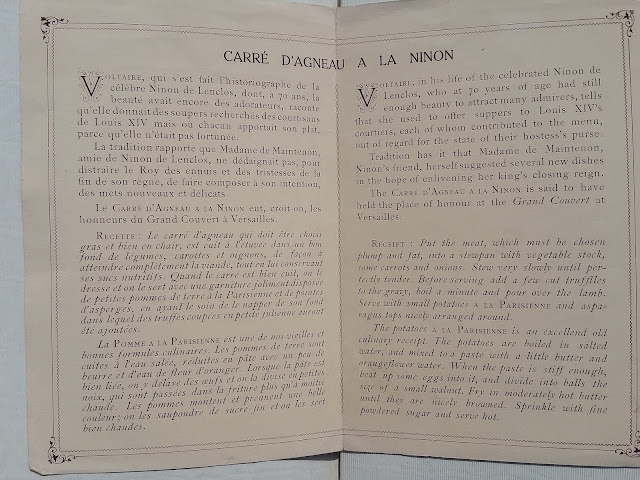 CARRÉ D'AGNEAU A LA NINON
VOLTAIRE, qui s'est fait l'historiographe de la
célèbre Ninon de Lenclos, dont, a 70 ans, la
beauté avait encore des adorateurs, raconte
qu'elle donnait des soupers recherchés des courtisans
de Louis XIV mais ou chacun apportait son plat,
parce qu'elle n'était pas fortunée.
La tradition rapporte que Madame de Maintenon,
amie de Ninon de Lenclos, ne dédaignait pas, pour
distraire le Roy des ennuis et des tristesses de la
fin de son règne, de faire composer à son intention,
des mets nouveaux et délicats.
Le CARRÉ D'AGNEAU A LA NINON eut, croit-on, les
honneurs du Grand Couvert à Versailles.
RECETTE : Le carré d'agneau qui doit être choisi
gras et bien en chair, est cuit à l'étuvée dans un bon
fond de légumes, carottes et oignons, de façon à
atteindre complètement la viande, tout en lui conservant
ses sucs nutritifs. Quand le carré est bien cuit, on le
dresse et on le sert avec une garniture joliment disposée
de petites pommes de terre à la Parisienne et de pointes
d'asperges, en ayant le soin de le napper de son fond
dans lequel des truffes coupées en petite julienne auront
été ajoutées.
La POMME A LA PARISIENNE est une de nos vieilles et
bonnes formules culinaires. Les pommes de terre sont
cuites à l'eau salée, réduites en pâte avec un peu de
beurre et d'eau de fleur d'oranger. Lorsque la pâte est
bien liée, on y délaye des œufs et on la divise en petites
noix, qui sont passées dans la friture plus qu'à moitié
chaude. Les pommes montent et prennent une belle
couleur; on les saupoudre de sucre fin et on les sert
bien chaudes.
VOLTAIRE, in his life of the celebrated Ninon de
Lenclos, who at 70 years of age had still
enough beauty to attract many admirers, tells
that she used to offer suppers to Louis XIV's
courtiers, each of whom contributed to the menu,
out of regard for the state of their hostess's purse.
Tradition has it that Madame de Maintenon,
Ninon's friend, herself suggested several new dishes
in the hope of enlivening her king's closing reign.
The CARRÉ D'AGNEAU A LA NINON is said to have
held the place of honour at the Grand Couvert at
Versailles.
RECEIPT : Put the meat, which must be chosen
plump and fat, into a stewpan with vegetable stock,
some carrots and onions. Stew very slowly until per-
fectly tender. Before serving add a few cut truffles
to the gravy, boil a minute and pour over the lamb.
Serve with small potatoes A LA PARISIENNE and aspa-
ragus tops nicely arranged around.
The potatoes A LA PARISIENNE is an excellend old
culinary receipt. The potatoes are boiled in salted
water, and mixed to a paste with a little butter and
orangeflower water. When the paste is stiff enough,
beat up some eggs into it, and divide into balls the
size of a small walnut. Fry in moderately hot butter
until they are nicely browned. Sprinkle with fine
powdered sugar and serve hot.